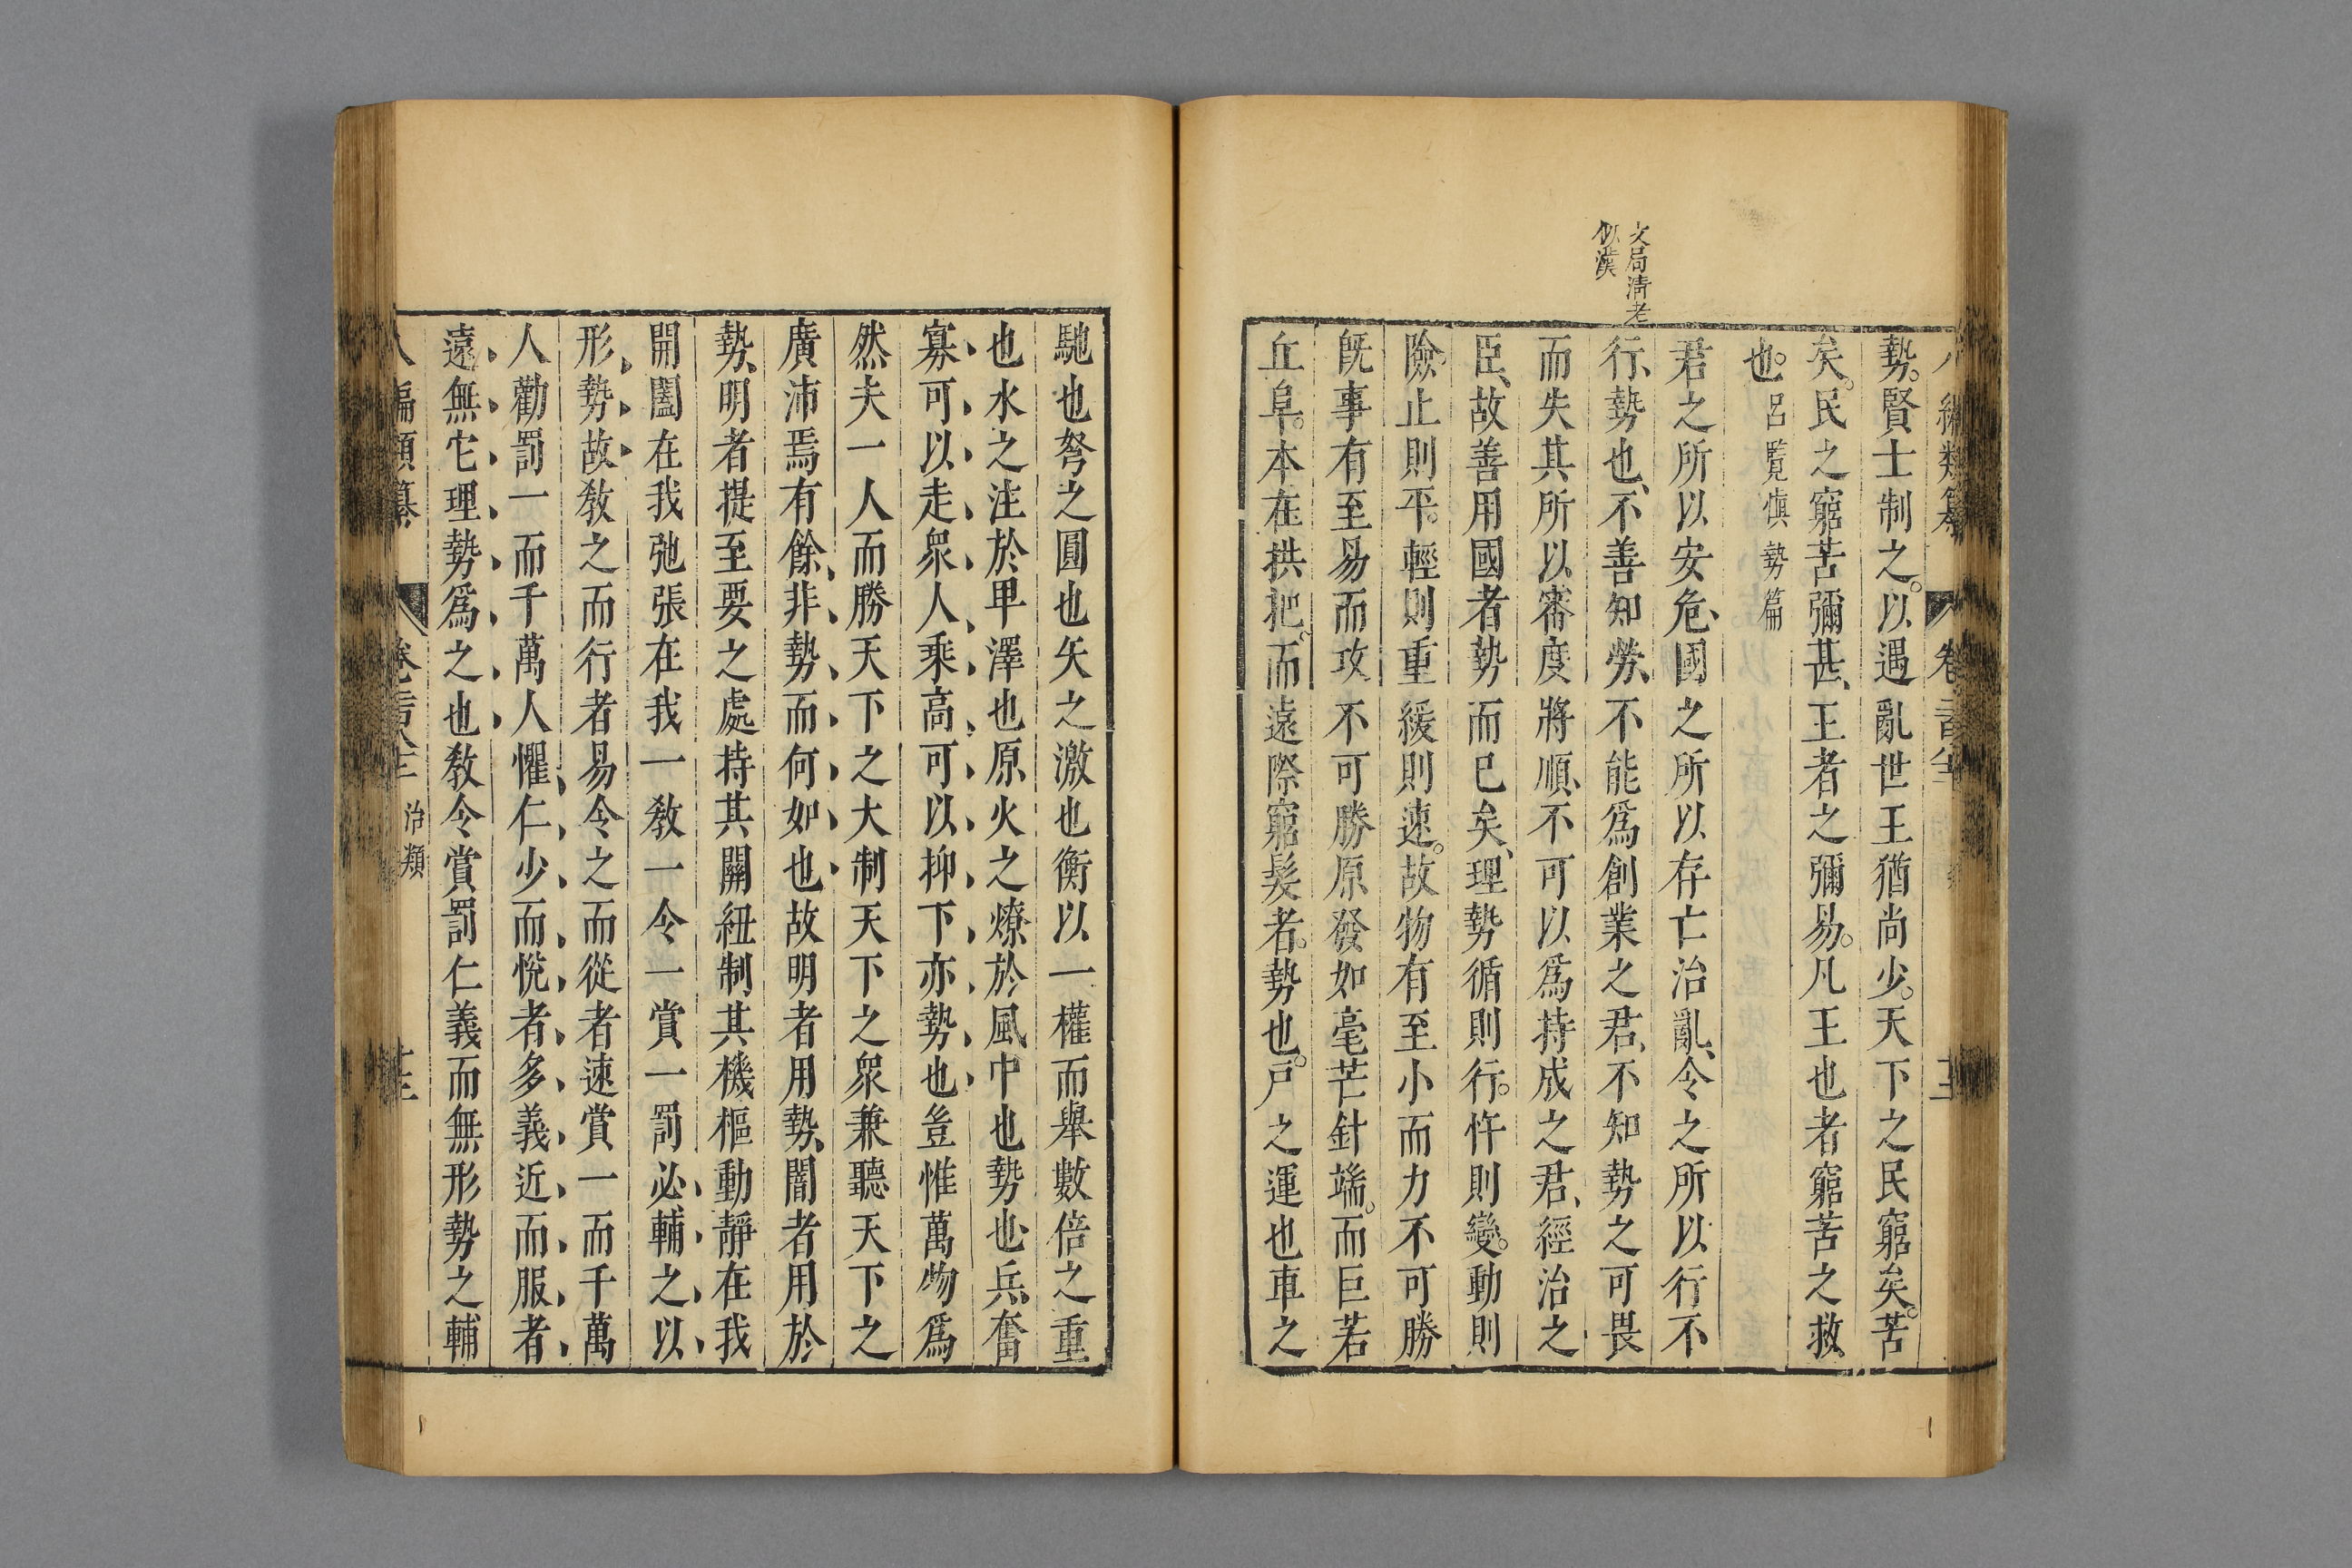 勢。賢士制之。以遇亂世王猶尚少。天下之民窮矣。苦
矣。民之窮苦彌甚、王者之彌易。凡王也者窮苦之救
也。呂覽慎勢篇
君之所以安危、國之所以存亡治亂、令之所以行不
行、勢也、不善知勞、不能爲創業之君、不知勢之可畏
而失其所以審度將順、不可以爲持成之君、經治之
臣、故善用國者勢而已矣、理勢循則行。忤則變。動則
險。止則平。輕則重緩則速。故物有至小而力不可勝
旣事有至易而攻不可勝原發如毫芒針端。而巨若
丘阜。本在拱把。而遠際窮髮者。勢也。戸之運也車之
文局淸老
似漢
馳也弩之圓也矢之激也衡以一權而舉數倍之重
也水之注於甲澤也原火之燎於風中也勢也兵奮
寡可以走衆人乘高可以抑下亦勢也豈惟萬物爲
然夫一人而勝天下之大制天下之衆兼聽天下之
廣沛焉有餘非勢而何如也故明者用勢、闇者用於
勢、明者提至要之處持其關紐制其機樞動靜在我
開闔在我弛張在我一敎一令一賞一罰必輔之以
形勢故敎之而行者易令之而從者速賞一而千萬
人勸罰一而千萬人懼仁少而悅者多義近而服者
遠無它理勢爲之也敎令賞罰仁義而無形勢之輔
編類纂
治類